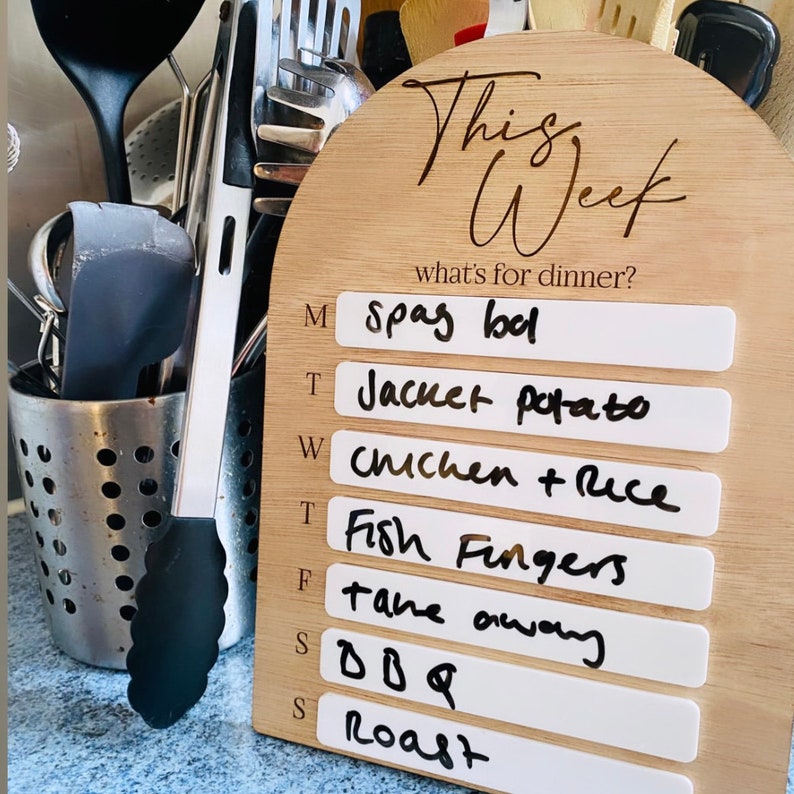 This
Week
what's for dinner?
M Spag bol
T Jacket potato
W Chicken + Rice
T Fish Fingers
F take away
S BBQ
S Roast